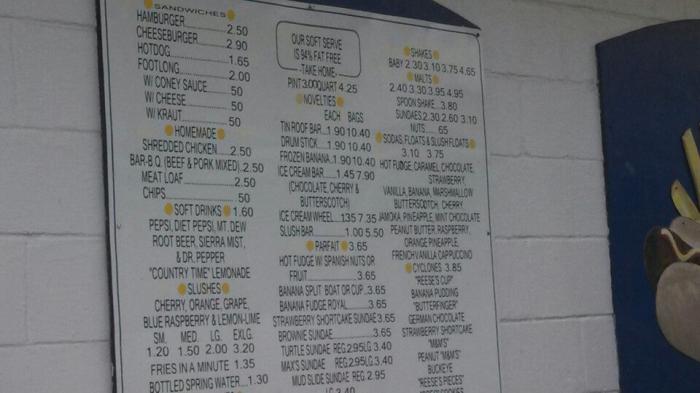 SANDWICHES
HAMBURGER 2.50
CHEESEBURGER 2.90
HOTDOG 1.65
FOOTLONG 2.00
W/ CONEY SAUCE 50
W/ CHEESE 50
W/ KRAUT 50
HOMEMADE
SHREDDED CHICKEN 2.50
BAR-B Q. (BEEF & PORK MIXED) 2.50
MEAT LOAF 2.50
CHIPS 50
SOFT DRINKS 1.60
PEPSI, DIET PEPSI, MT. DEW
ROOT BEER, SIERRA MIST,
& DR. PEPPER
"COUNTRY TIME" LEMONADE
SLUSHES
CHERRY, ORANGE, GRAPE,
BLUE RASPBERRY & LEMON-LIME
SM. MED. LG. EXLG.
1.20 1.50 2.00 3.20
FRIES IN A MINUTE 1.35
BOTTLED SPRING WATER 1.30
OUR SOFT SERVE
IS 94% FAT FREE
-TAKE HOME-
PINT 3.00 QUART 4.25
NOVELTIES
EACH BAGS
TIN ROOF BAR 1.90 10.40
DRUM STICK 1.90 10.40
FROZEN BANANA 1.90 10.40
ICE CREAM BAR 1.45 7.90
(CHOCOLATE, CHERRY &
BUTTERSCOTCH)
ICE CREAM WHEEL 1.35 7.35
SLUSH BAR 1.00 5.50
PARFAIT 3.65
HOT FUDGE W/ SPANISH NUTS OR
FRUIT 3.65
BANANA SPLIT BOAT OR CUP 3.65
BANANA FUDGE ROYAL 3.65
STRAWBERRY SHORTCAKE SUNDAE 3.65
BROWNIE SUNDAE 3.65
TURTLE SUNDAE REG. 2.95 LG 3.40
MAX'S SUNDAE REG. 2.95 LG. 3.40
MUD SLIDE SUNDAE REG. 2.95
LG 3.40
SHAKES
BABY 2.30 3.10 3.75 4.65
MALTS
2.40 3.30 3.95 4.95
SPOON SHAKE 3.80
SUNDAES 2.30 2.60 3.10
NUTS 65
SODAS, FLOATS & SLUSH FLOATS
3.10 3.75
HOT FUDGE, CARAMEL, CHOCOLATE,
STRAWBERRY,
VANILLA, BANANA, MARSHMALLOW
BUTTERSCOTCH, CHERRY
JAMOKA, PINEAPPLE, MINT CHOCOLATE
PEANUT BUTTER, RASPBERRY,
ORANGE PINEAPPLE,
FRENCH VANILLA CAPPUCCINO
CYCLONES 3.85
"REESE'S CUP"
BANANA PUDDING
"BUTTERFINGER"
GERMAN CHOCOLATE
STRAWBERRY SHORTCAKE
"M&M'S"
PEANUT "M&M'S"
BUCKEYE
"REESE'S PIECES"